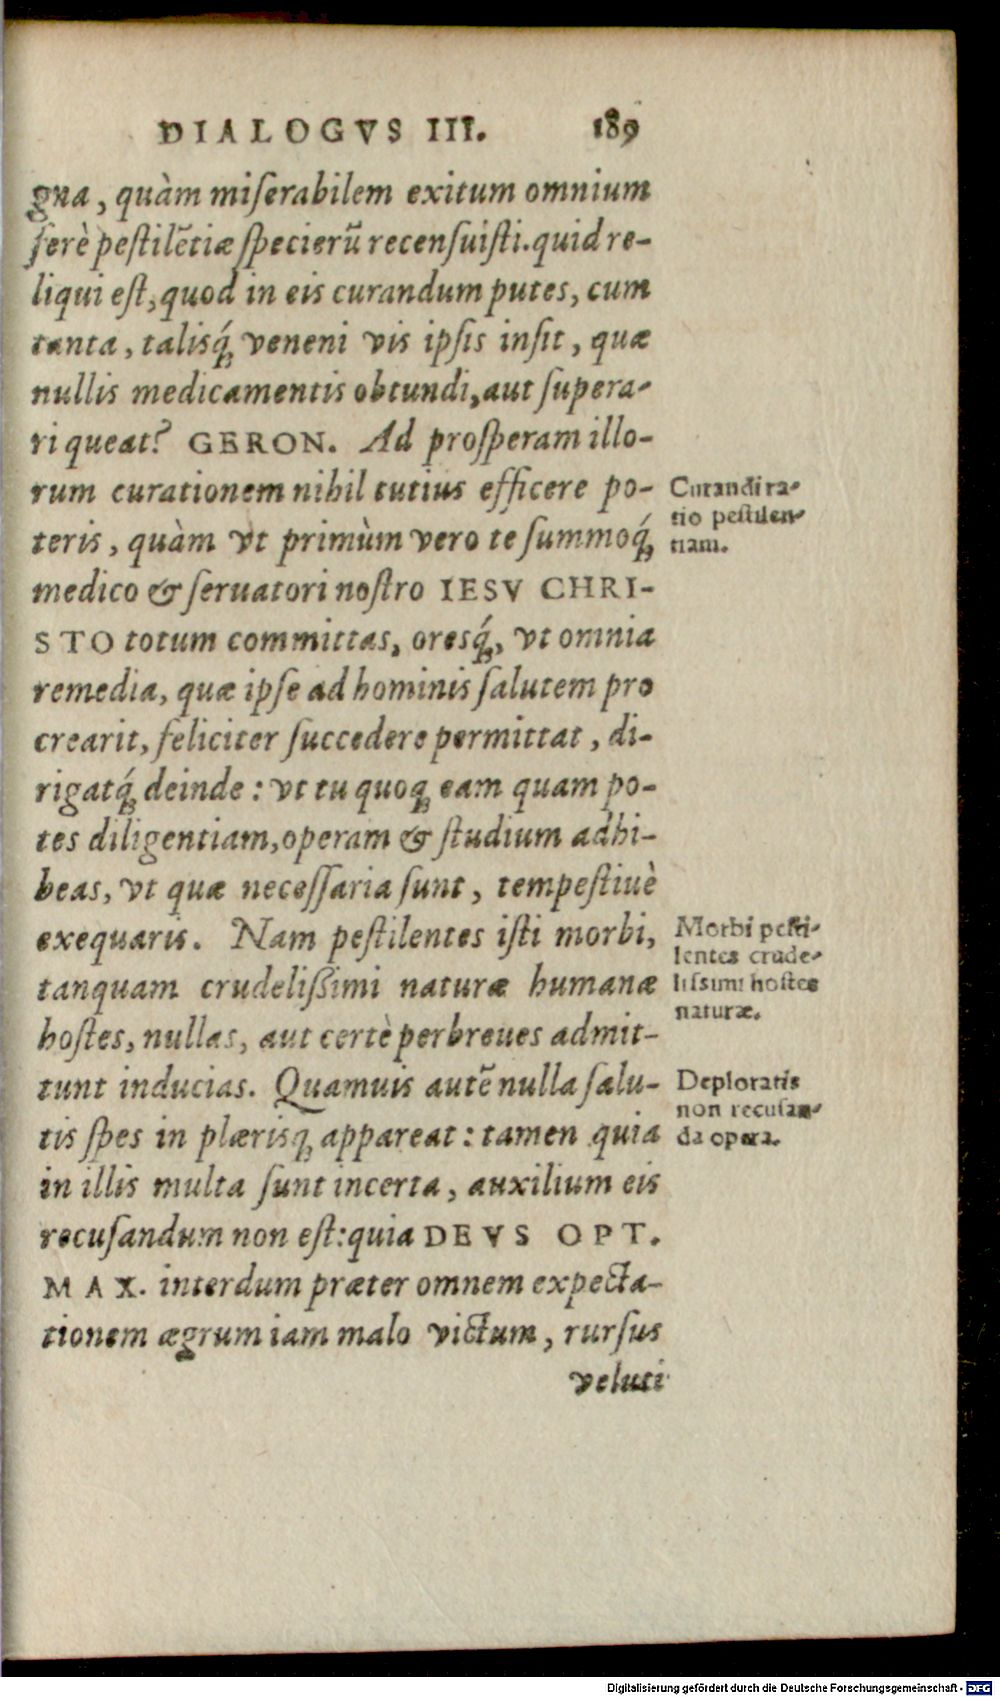 DIALOGVS III. 189
gna, quàm miſerabilem exitum omnium
ferè peſtilẽtiæ ſpecierũ recenſuiſti. quid re-
liqui eſt, quod in eis curandum putes, cum
tanta, talisq́ꝫ veneni vis ipſis inſit, quæ
nullis medicamentis obtundi, aut ſupera-
ri queat? GERON. Ad proſperam illo-
rum curationem nihil tutius efficere po-
teris, quàm vt primùm vero te ſummoq́ꝫ
medico & ſeruatori noſtro IESV CHRI-
STO totum committas, oresq́ꝫ, vt omnia
remedia, quæ ipſe ad hominis ſalutem pro
crearit, feliciter ſuccedere permittat, di-
rigatq́ꝫ deinde: vt tu quoqꝫ eam quam po-
tes diligentiam, operam & ſtudium adhi-
beas, vt quæ neceſſaria ſunt, tempeſtiuè
exequaris. Nam peſtilentes iſti morbi,
tanquam crudeliſſimi naturæ humanæ
hoſtes, nullas, aut certè perbreues admit-
tunt inducias. Quamuis autẽ nulla ſalu-
tis ſpes in plærisqꝫ appareat: tamen quia
in illis multa ſunt incerta, auxilium eis
recuſandum non eſt: quia DEVS OPT.
MAX. interdum præter omnem expecta-
tionem ægrum iam malo victum, rurſus
veluti
Curandi ra-
tio peſtilen-
tiam.
Morbi peſti-
lentes crude-
liſsimi hoſtes
naturæ.
Deploratis
non recuſan-
da opera.
Digitalisierung gefördert durch die Deutsche Forschungsgemeinschaft - DFG